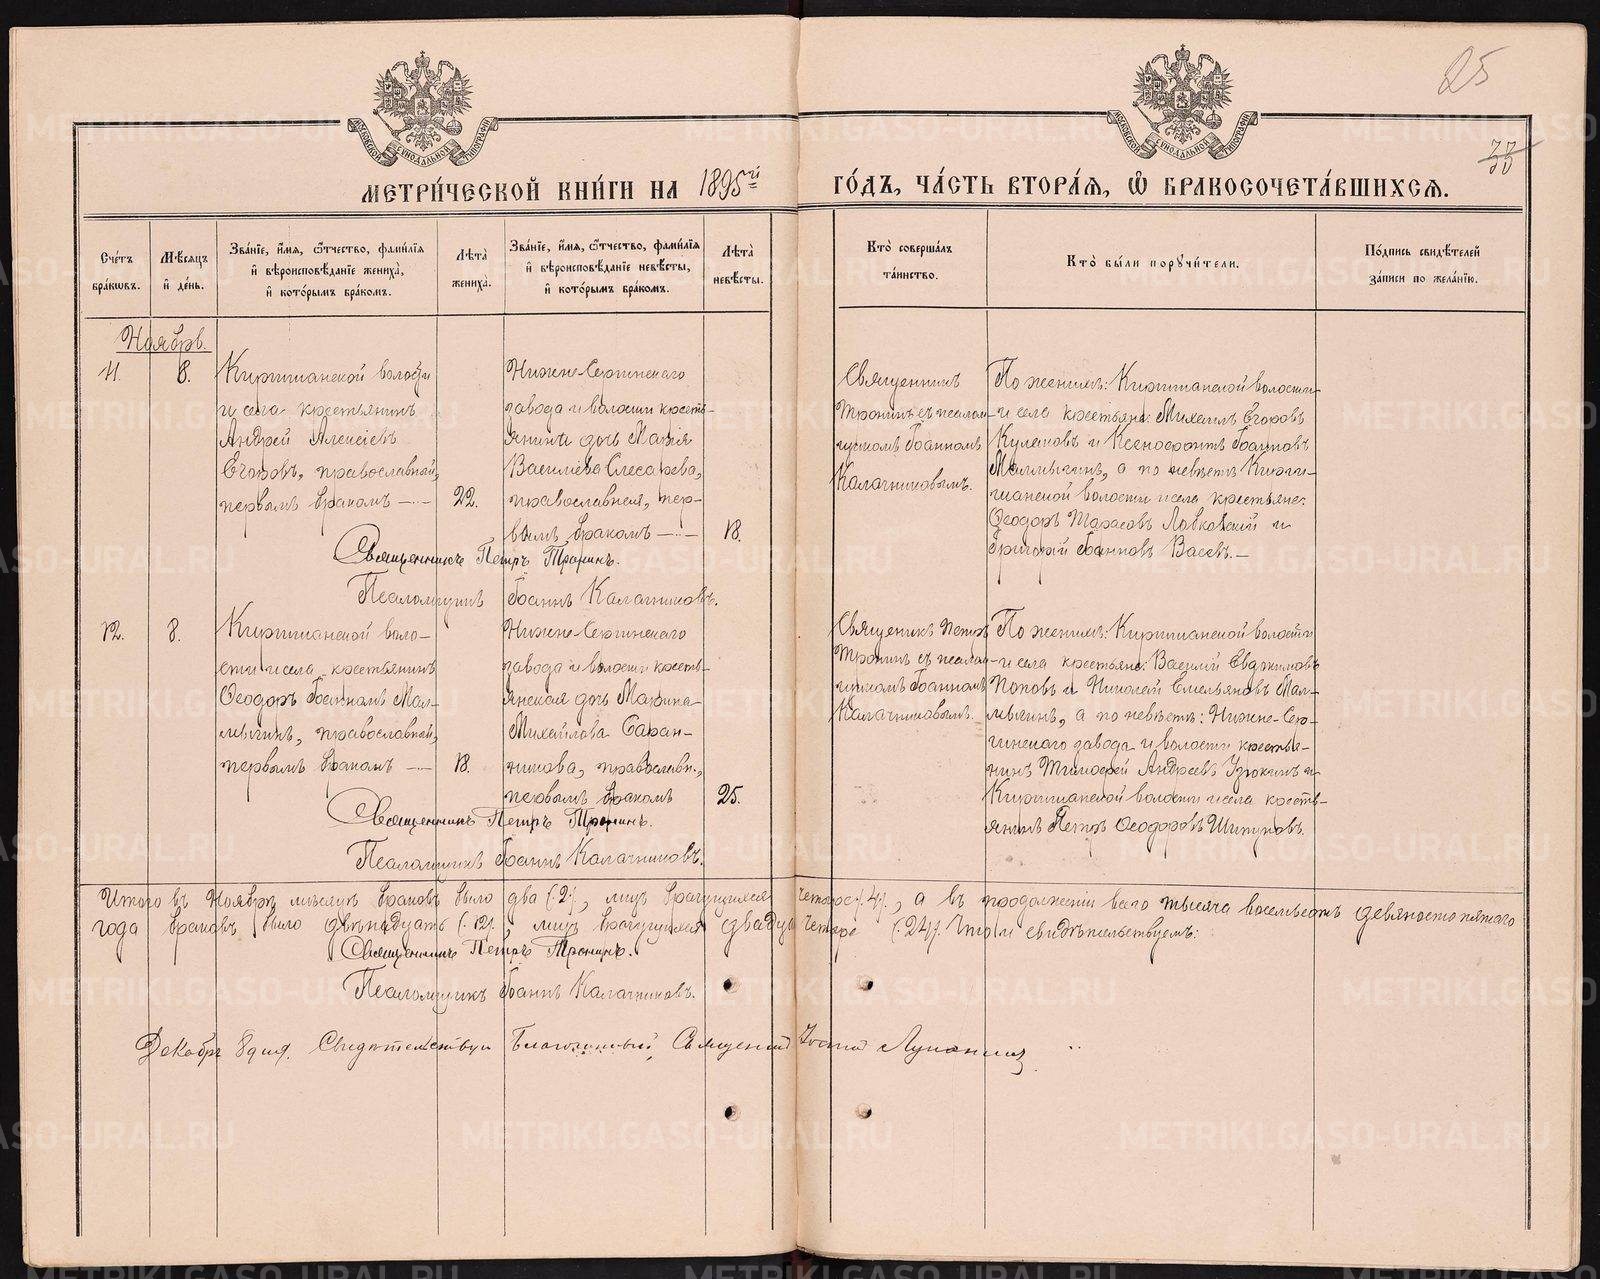 25
33
МЕТРИ́ЧЕСКОЙ КНИ́ГИ НА 1895й ГО́ДЪ, ЧА́СТЬ ВТОРА́Я, Ѽ БРАКОСОЧЕТА́ВШИХСѦ.
МОСКОВСКОЙ СѴНОДАЛЬНОЙ ТИПОГРАФІИ
МОСКОВСКОЙ СѴНОДАЛЬНОЙ ТИПОГРАФІИ
Сче́тъ бра́ковъ.
Мѣ́сяцъ и҆ де́нь.
Зва́нїе, и҆́мя, ѻ҆́тчество, фами́лїя и҆ вѣроисповѣ́данїе жениха̀, и҆ кото́рымъ бра́комъ.
Лѣ́та жениха̀.
Зва́нїе, и҆́мя, ѻ҆́тчество, фами́лїя и҆ вѣроисповѣ́данїе невѣ́сты, и҆ кото́рымъ бра́комъ.
Лѣ́та невѣ́сты.
Кто̀ соверша́лъ та́инство.
Кто̀ бы́ли порꙋчи́тели.
По́дпись свидѣ́телей за́писи по жела́нїю.
Ноябрь.
11.
8.
Киргишанской волости
и села крестьянинъ
Андрей Алексіевъ
Егоровъ, православный,
первымъ бракомъ —
22.
Нижне-Сергинскаго
завода и волости кресть-
янина дочь Марія
Васильева Слесарева,
православная, пер-
вымъ бракомъ —
18.
Священникъ
Тронинъ съ псалом-
щикомъ Іоанномъ
Калачниковымъ.
По женихѣ: Киргишанской волости
и села крестьяне: Михаилъ Егоровъ
Кулаковъ и Ксенофонтъ Іоанновъ
Малмыгинъ, а по невѣстѣ Кирги-
шанской волости и села крестьяне:
Ѳеодоръ Тарасовъ и
Григорій Іоанновъ Васевъ. —
Священникъ Петръ Тронинъ.
Псаломщикъ Іоаннъ Калачниковъ.
12.
8.
Киргишанской воло-
сти и села крестьянинъ
Ѳеодоръ Іоанновъ Мал-
мыгинъ, православный,
первымъ бракомъ —
18.
Нижне-Сергинскаго
завода и волости кресть-
янская дочь Марина
Михайлова Баран-
никова, православн.,
первымъ бракомъ
25.
Священникъ Петръ
Тронинъ съ псалом-
щикомъ Іоанномъ
Калачниковымъ.
По женихѣ: Киргишанской волости
и села крестьяне: Василій
Поповъ и Николай Емельяновъ Мал-
мыгинъ, а по невѣстѣ: Нижне-Сер-
гинскаго завода и волости крестья-
нинъ Тимофей Андреевъ и
Киргишанской волости и села кресть-
янинъ Петръ Ѳеодоровъ Шипуновъ.
Священникъ Петръ Тронинъ.
Псаломщикъ Іоаннъ Калачниковъ.
Итого въ Ноябрѣ мѣсяцѣ браковъ было два (.2.), лицъ брачущихся четыре (.4.), а въ продолженіи всего тысяча восемьсотъ девяносто пятаго
года браковъ было двѣнадцать (.12.), лицъ брачущихся двадцать четыре (.24.). Что и свидѣтельствуемъ:
Священникъ Петръ Тронинъ.
Псаломщикъ Іоаннъ Калачниковъ.
Декабря 8 дня. Свидѣтельствуетъ Благочинный, Священникъ
METRIKI.GASO-URAL.RU